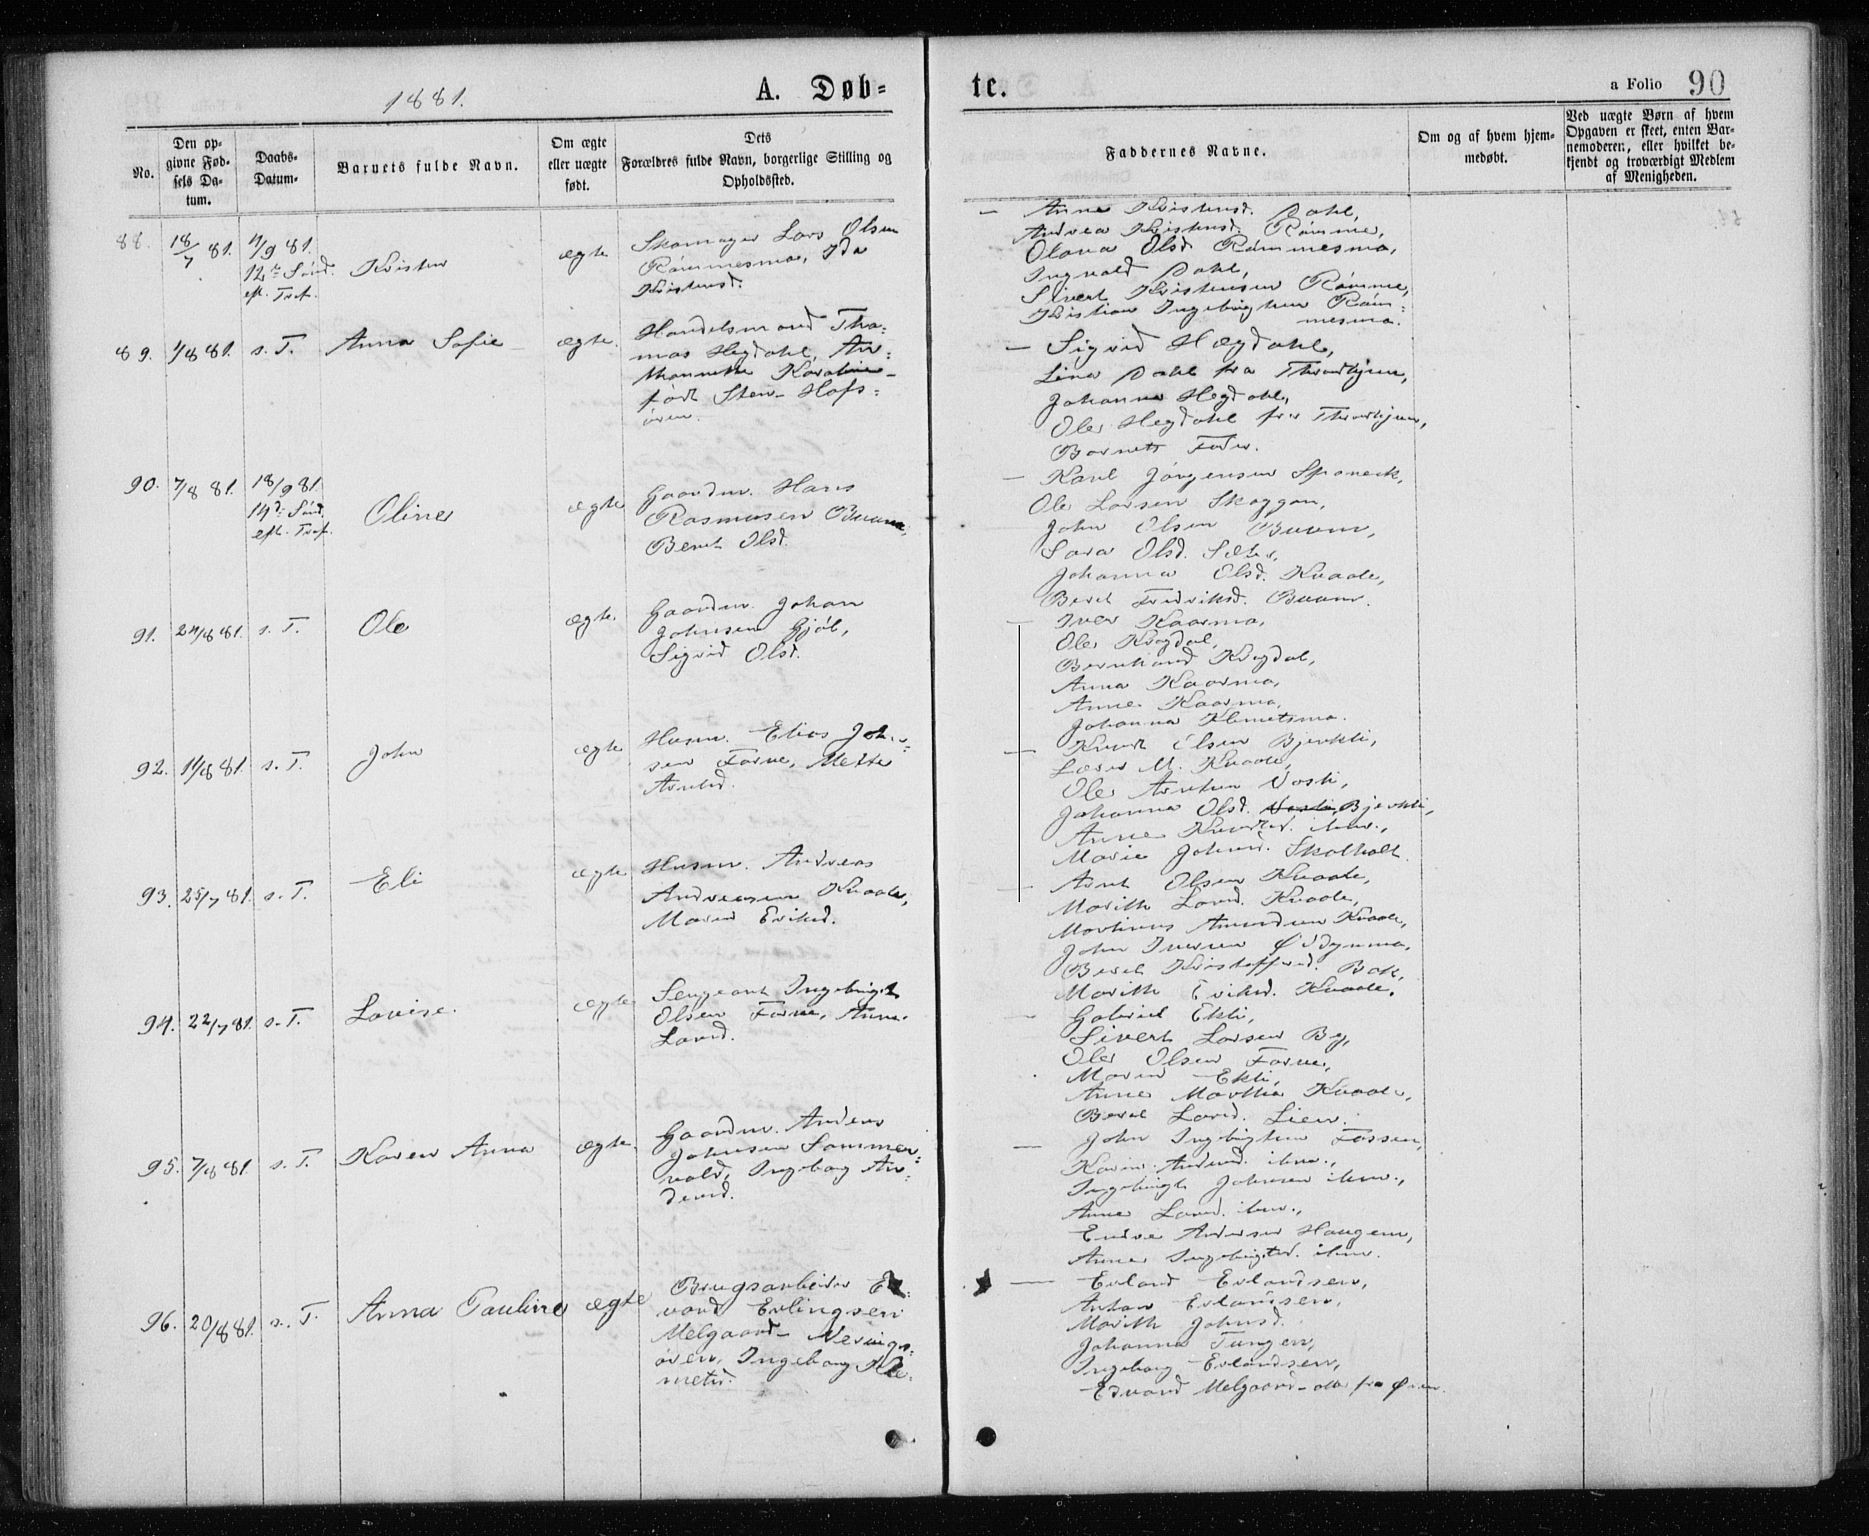 1881.
A. Døb=
te.
a Folio 90
No.
Den op-
givne Fød-
sels Da-
tum.
Daabs-
Datum.
Barnets fulde Navn.
Om ægte
eller uægte
født.
Dets
Forældres fulde Navn, borgerlige Stilling og
Opholdssted.
Faddernes Navne.
Om og af hvem hjem-
medøbt.
Ved uægte Børn af hvem
Opgaven er skeet, enten Bar-
nemoderen, eller hvilket be-
kjendt og troværdigt Medlem
af Menigheden.
88.
18/7 81.
4/9 81.
12te Sønd.
eft. Tref.
Kristen
ægte
Skomager Lars Olsen
Rømmesmo, Ida
Kristensd.
Anne Kristensd. Dahl,
Andrea Kristensd. Rømme,
Olava Olsd. Rømmesmo,
Ingvald Dahl,
Sivert Kristensen Rømme,
Kristian Ingebrigtsen Røm=
mesmo.
89.
1/8 81.
s. T.
Anna Sofie
ægte.
Handelsmand Tho=
mas Hegdahl, An=
Karoline
født Sten- Hofs=
øren.
Sigrid Hegdahl,
Lina Dahl fra Throndhjem,
Johanna Hegdahl,
Ole Hegdahl fra Throndhjem,
Barnets Fader.
90.
7/8 81.
18/9 81.
14de Sønd.
eft. Tref.
Oline
ægte
Gaardm. Hans
Rasmussen Buaun,
Beret Olsd.
Karl Jørgensen Sponeck,
Ole Larsen Skoggan,
John Olsen
Sara Olsd. Sæter,
Johanna Olsd. Kvaale,
Beret Fredriksd.
91.
24/8 81.
s. T.
Ole
ægte.
Gaardm. Johan
Johnsen Gjøl,
Sigrid Olsd.
Iver Kaarmo,
Ole Krogdal,
Bernhard Krogdal,
Anna Kaarmo,
Anne Kaarmo,
Johanna Klemetsmo.
92.
s. T.
John
ægte
Husm. Elias Joh=
sen Forve, Mette
Arntsd.
Knut Olsen Bjerkli,
Lars M. Kvaale,
Ole Arntsen Vasli,
Johanna Olsd. Bjerkli,
Anne Knudsd. ibm.,
Marie Johnsd. Skolholt.
93.
25/7 81.
s. T.
Eli
ægte
Husm. Andreas
Andreasen Kvaale,
Maren Eriksd.
Arnt Olsen Kvaale,
Marith Larsd. Kvaale,
Martinus Amundsen Kvaale,
John Iversen
Beret Kristoffersd. Bak,
Marith Eriksd. Kvaale.
94.
22/7 81.
s. T.
Lovise.
ægte
Sergeant Ingebrigt
Olsen Forve, Anne
Larsd.
Gabriel Ekli,
Sivert Larsen By,
Ole Olsen Forve,
Maren Ekli,
Anne Martha Kvaale,
Beret Larsd. Lien.
95.
7/8 81.
s. T.
Karen Anna
ægte.
Gaardm. Anders
Johnsen Sommer=
vold, Ingeborg An=
dersd.
John Ingebrigtsen Fossen,
Karin Andersd. ibm.,
Ingebrigt Johnsen ibm.,
Anne Larsd. ibm.,
Endre Andersen Haugen,
Anne Ingebrigtsd. ibm.
96.
20/8 81.
s. T.
Anna Pauline
ægte
Brugsarbeider
Erlingsen
Melgaard- Nerviigs=
øren, Ingeborg Kle=
metsd.
Erland Erlandsen,
Anton Erlandsen,
Marith Johnsd.
Johanna Tungen,
Ingeborg Erlandsen,
Edvard Melgaard- alle fra Øren.